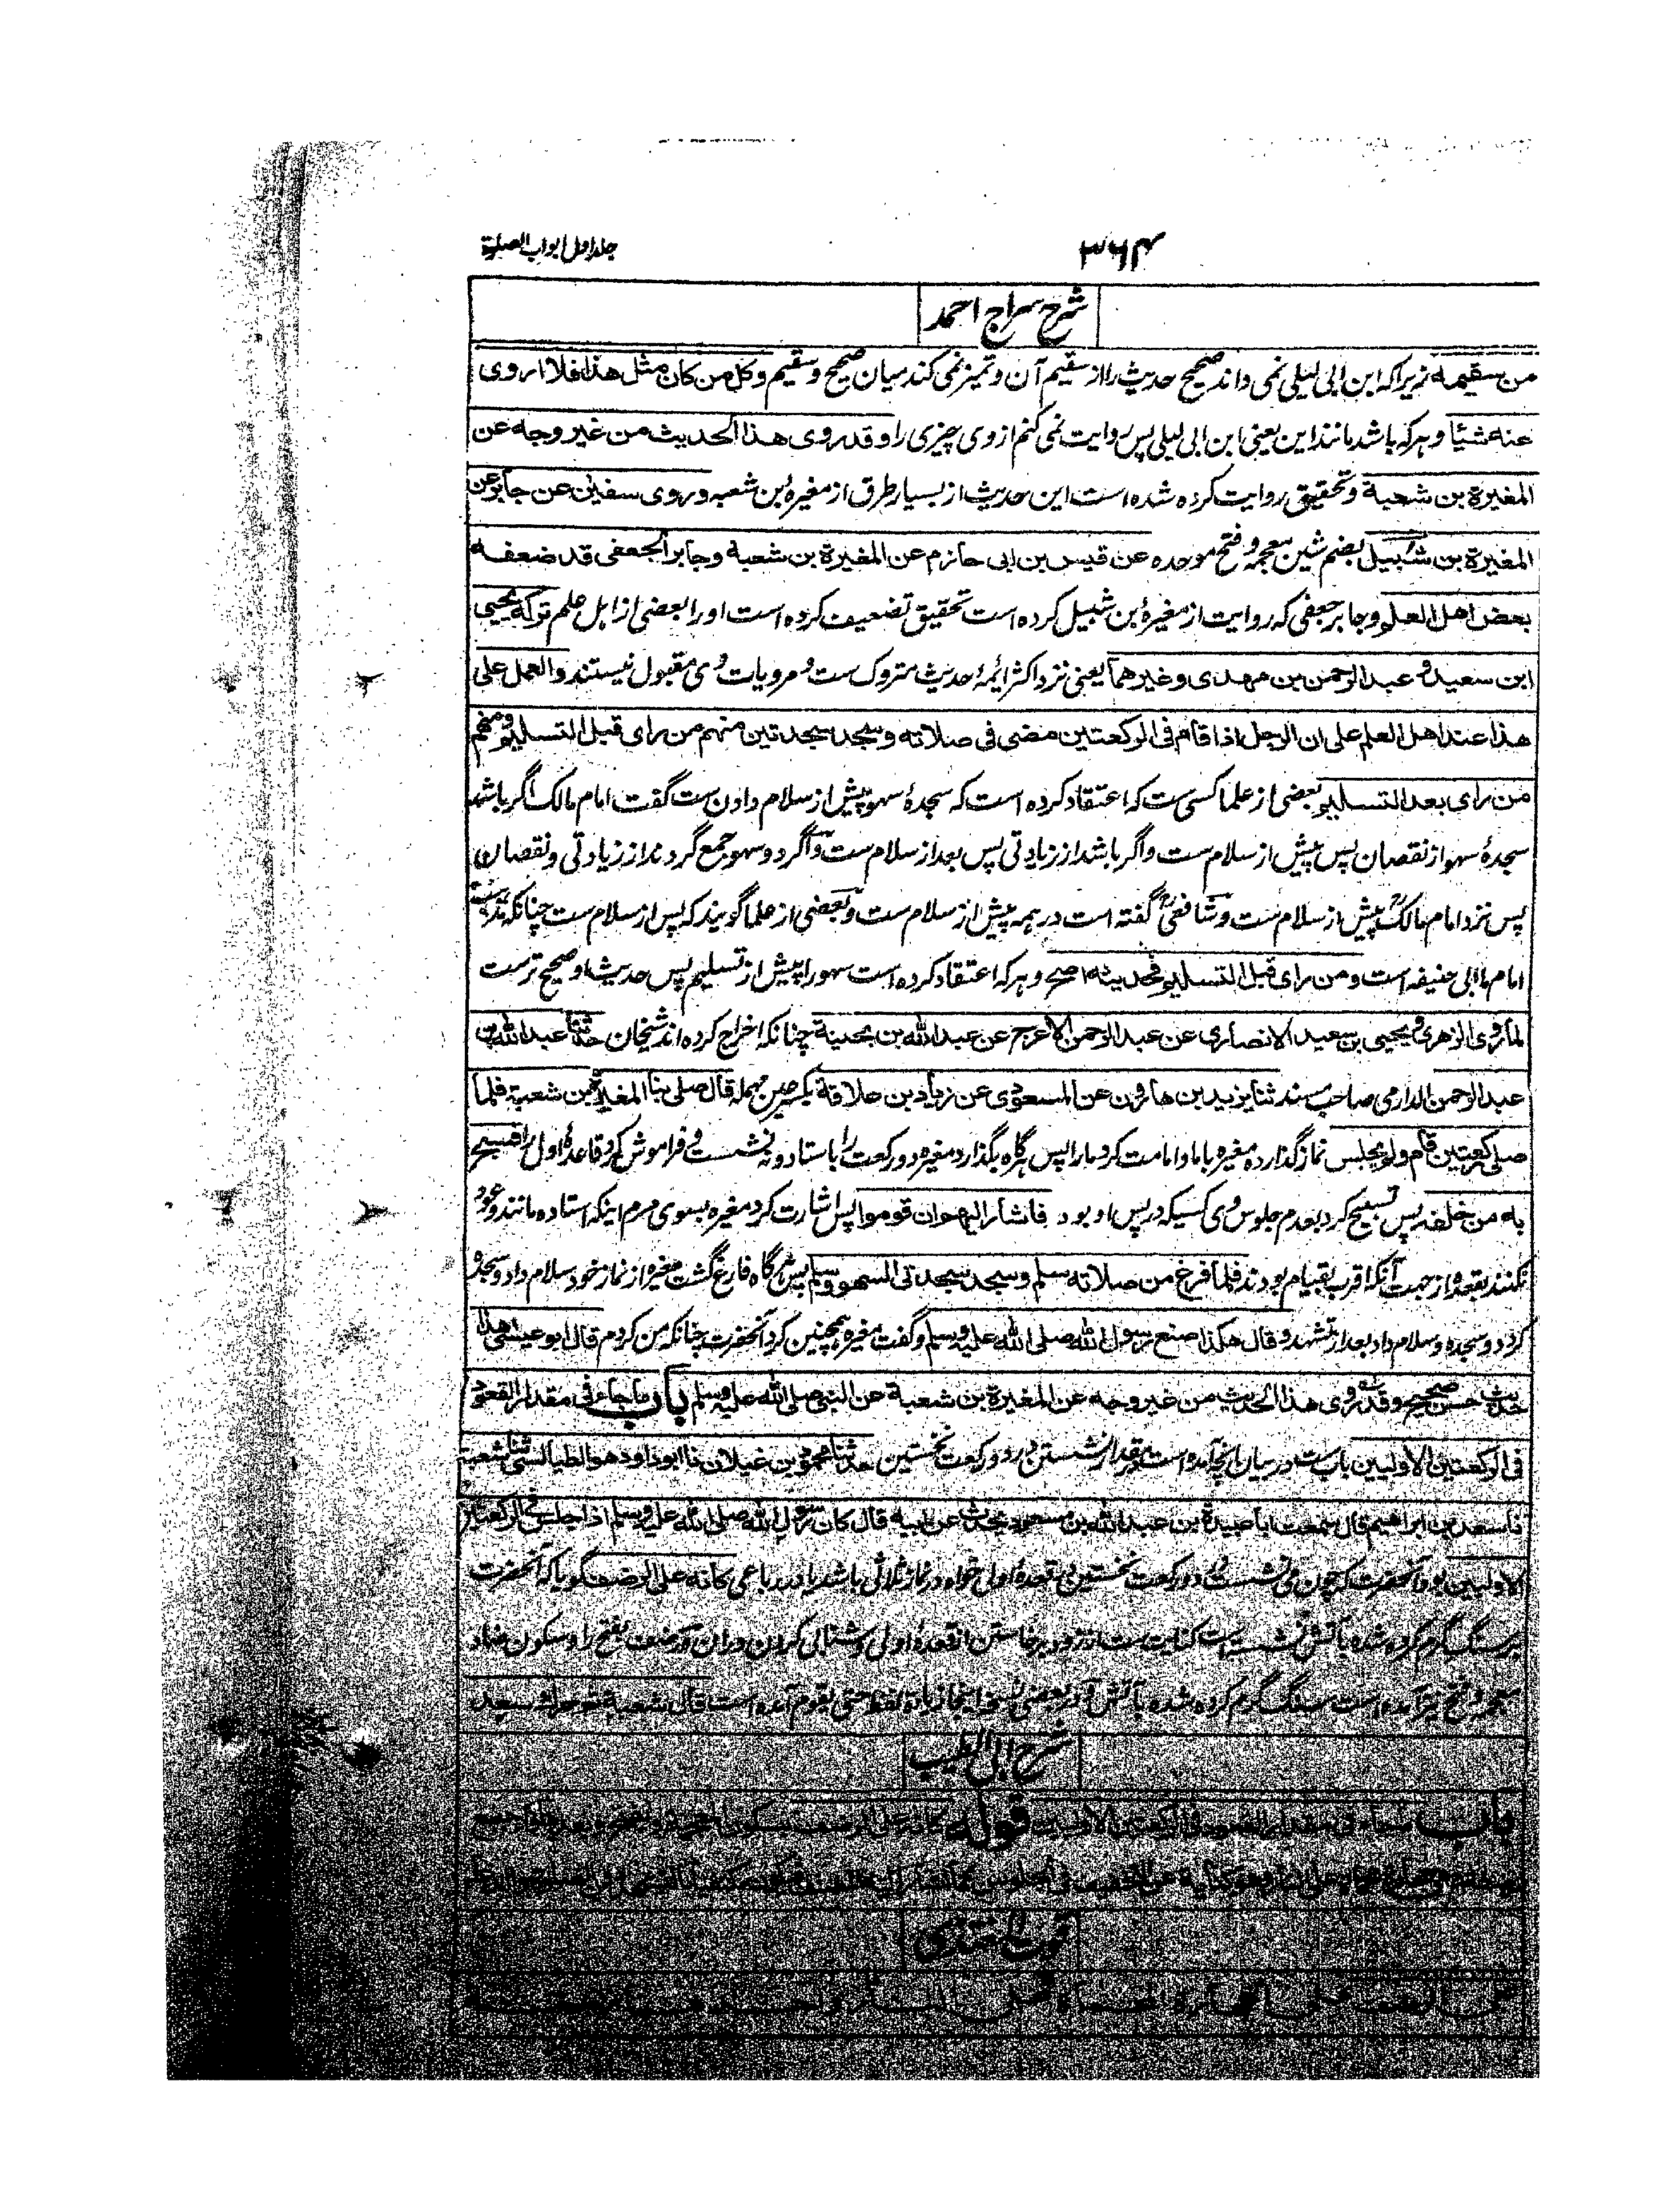 ۳۶۴
جلد اول ابواب الصلوة
شرح سراج احمد
من سقیمه زیراکه ابن ابی لیلی نمی داند صحیح حدیث را از سقیم آن و تمیز نمی کند میان صحیح و سقیم وکل من کان مثل هذا فلا اروی
عنه شیئا و هرکه باشد مانند این یعنی ابن ابی لیلی پس روایت نمی کنم از وی چیزی را وقد روی هذا الحدیث من غیر وجه عن
المغیرة بن شعبة و تحقیق روایت کرده شده است این حدیث از بسیار طرق از مغیرهٔ بن شعبه وروی سفین عن جابر عن
المغیرة بن شبیل بضم شین معجمه و فتح موحده عن قیس بن ابی حازم عن المغیرة بن شعبة وجابر الجعفی قد ضعفه
بعض اهل العلم و جابر جعفی که روایت از مغیرهٔ بن شبیل کرده است تحقیق تضعیف کرده است او را بعضی از اهل علم ترکه یحیی
ابن سعید و عبد الرحمن بن مهدی وغیرهما یعنی نزد اکثر ائمهٔ حدیث متروک ست و مرویات وی مقبول نیستند والعمل علی
هذا عند اهل العلم علی ان الرجل اذا قام فی الرکعتین مضی فی صلاته وسجد سجدتین منهم من رای قبل التسلیم ومنهم
من رای بعد التسلیم بعضی از علما کسی ست که اعتقاد کرده است که سجدهٔ سهو پیش از سلام دادن ست گفت امام مالک اگر باشد
سجدهٔ سهو از نقصان پس پیش از سلام ست و اگر باشد از زیادتی پس بعد از سلام ست و اگر دو سهو جمع گردند از زیادتی و نقصان
پس نزد امام مالک پیش از سلام ست و شافعی گفته است در همه پیش از سلام ست و بعضی از علما گویند که پس از سلام ست چنانکه مذهب
امام ما ابی حنیفه است ومن رای قبل التسلیم فحدیثه اصح و هرکه اعتقاد کرده است سهو را پیش از تسلیم پس حدیث او صحیح ترست
لما روی الزهری ویحیی بن سعید الانصاری عن عبد الرحمن الاعرج عن عبد الله بن بحینة چنانکه اخراج کرده اند شیخان حدثنا عبد الله بن
عبد الرحمن الدارمی صاحب مسند ثنا یزید بن هارون عن المسعودی عن زیاد بن علاقة بکسر عین مهمله قال صلی بنا المغیرة بن شعبة فلما
صلی رکعتین قام ولم یجلس نماز گذارد مغیره با ما و امامت کرد ما را پس هرگاه بگذارد مغیره دو رکعت را باستاد و نه نشست و فراموش کرد قاعدهٔ اول را فسبح
به من خلفه پس تسبیح کرد بعدم جلوس وی کسیکه در پس او بود فاشار الیهم ان قوموا پس اشارت کرد مغیره بسوی مردم اینکه استاده مانند و عود
نکنند بقعده از جهت آنکه اقرب بقیام بودند فلما فرغ من صلاته سلم وسجد سجدتی السهو وسلم پس هرگاه فارغ گشت مغیره از نماز خود سلام داد و سجدهٔ
کرد دو سجده و سلام داد بعد از تشهد وقال هکذا صنع رسول الله صلی الله علیه وسلم و گفت مغیره همچنین کرد آنحضرت چنانکه من کردم قال ابو عیسی هذا
حدیث حسن صحیح وقد روی هذا الحدیث من غیر وجه عن المغیرة بن شعبة عن النبی صلی الله علیه وسلم باب ما جاء فی مقدار القعود
فی الرکعتین الاولیین باب ست در بیان آنچه آمده است در مقدار نشستن در دو رکعت نخستین حدثنا محمود بن غیلان نا ابو داود هو الطیالسی ثنا شعبة
نا سعد بن ابراهیم قال سمعت ابا عبیدة بن عبد الله بن مسعود یحدث عن ابیه قال کان رسول الله صلی الله علیه وسلم اذا جلس فی الرکعتین
الاولیین بود آنحضرت که چون می نشست در دو رکعت نخستین در قعدهٔ اولی خواه در نماز ثلاثی باشد یا در رباعی کانه علی الرضف گویا که آنحضرت
بر سنگ گرم کرده شده بآتش نشسته است کنایت ست از زود برخاستن از قعدهٔ اولی و شتابی کردن در آن و رضف بفتح را و سکون ضاد
معجمه و فتح نیز آمده است سنگ گرم کرده شده بآتش و در بعضی نسخ اینجا زیاده لفظ حتی یقوم آمده است قال شعبة ثم حرک سعد
شرح ابی الطیب
باب ما جاء فی مقدار القعود فی الرکعتین الاولیین قوله کانه علی الرضف
قوت المغتذی